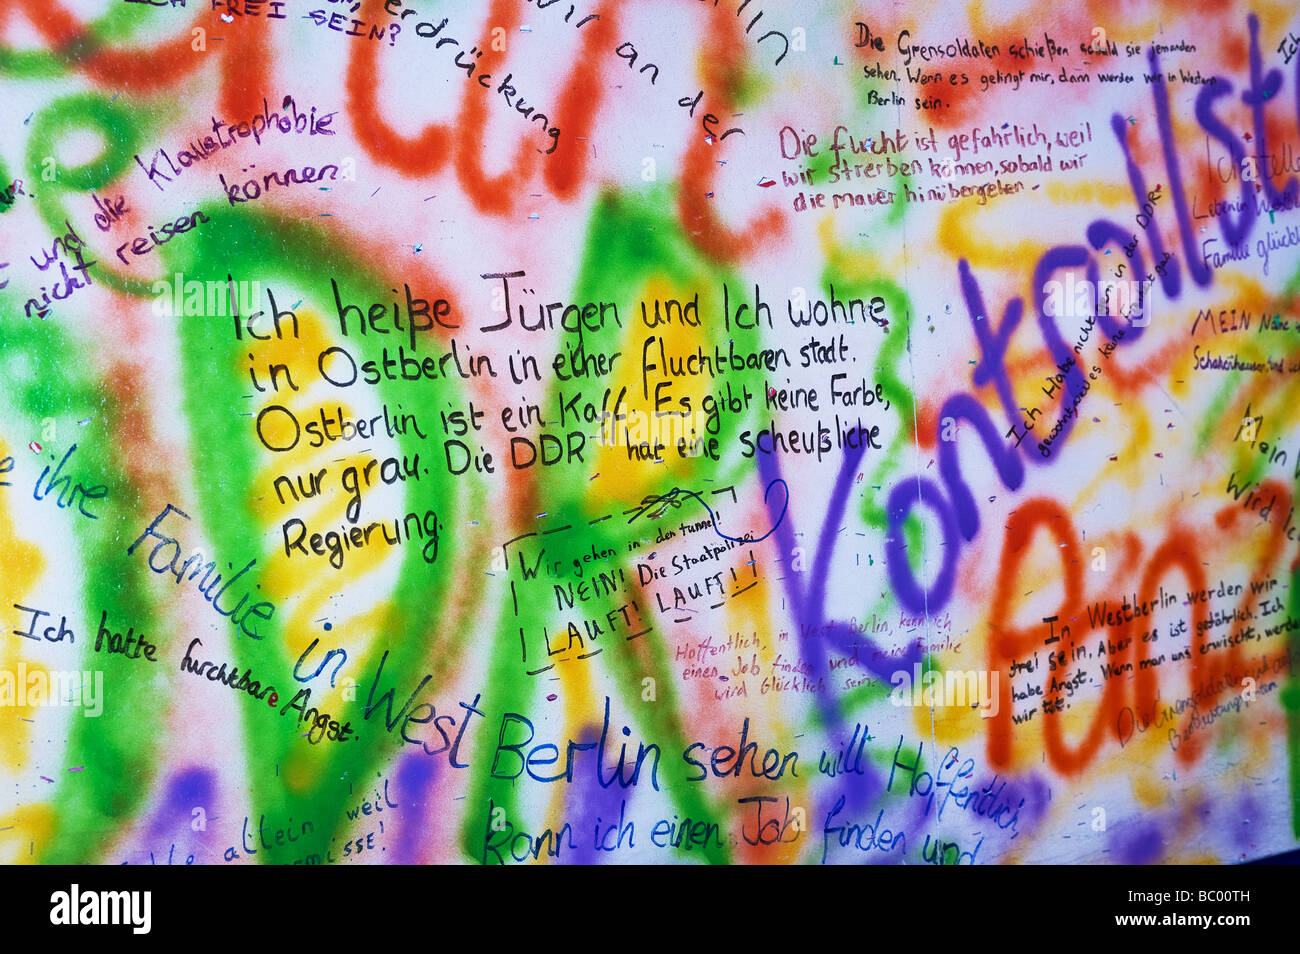 ICH FREI SEIN?
erdrückung
wir an der
Klaustrophobie
und die
nicht reisen können.
Die Grensoldaten schießen sobald sie jemanden
sehen. Wenn es gelingt mir, dann werden wir in Western
Berlin sein.
Die flucht ist gefährlich, weil
wir streben können, sobald wir
die maver hinübergehen -
Ich heiße Jürgen und Ich wohne
in Ostberlin in einer fluchtbaren stadt.
Ostberlin ist ein Kaff. Es gibt keine Farbe,
nur grau. Die DDR hat eine scheußliche
Regierung.
Wir gehen in den tunnel!
NEIN! Die Staatpolizei
LAUFT! LAUFT!
LAUFT!
Kontroll
Ich Habe nicht gern in der DDR
gewohnt, weil es keine Freiheit gab.
Familie glückl
MEIN
Mein
Wird Ich
ihre Familie in West Berlin sehen will
Hoffentlich,
kann ich einen Job finden und
Ich hatte furchtbare Angst.
allein weil
Hoffentlich, in West Berlin, kann ich
einen Job finden und meine Familie
wird Glücklich sein.
In Westberlin werden wir
frei sein. Aber es ist gefährlich. Ich
habe Angst. Wenn man uns erwischt, werden
wir tot.
Die Grensoldaten
alamy
Image ID: BC00TH
www.alamy.com